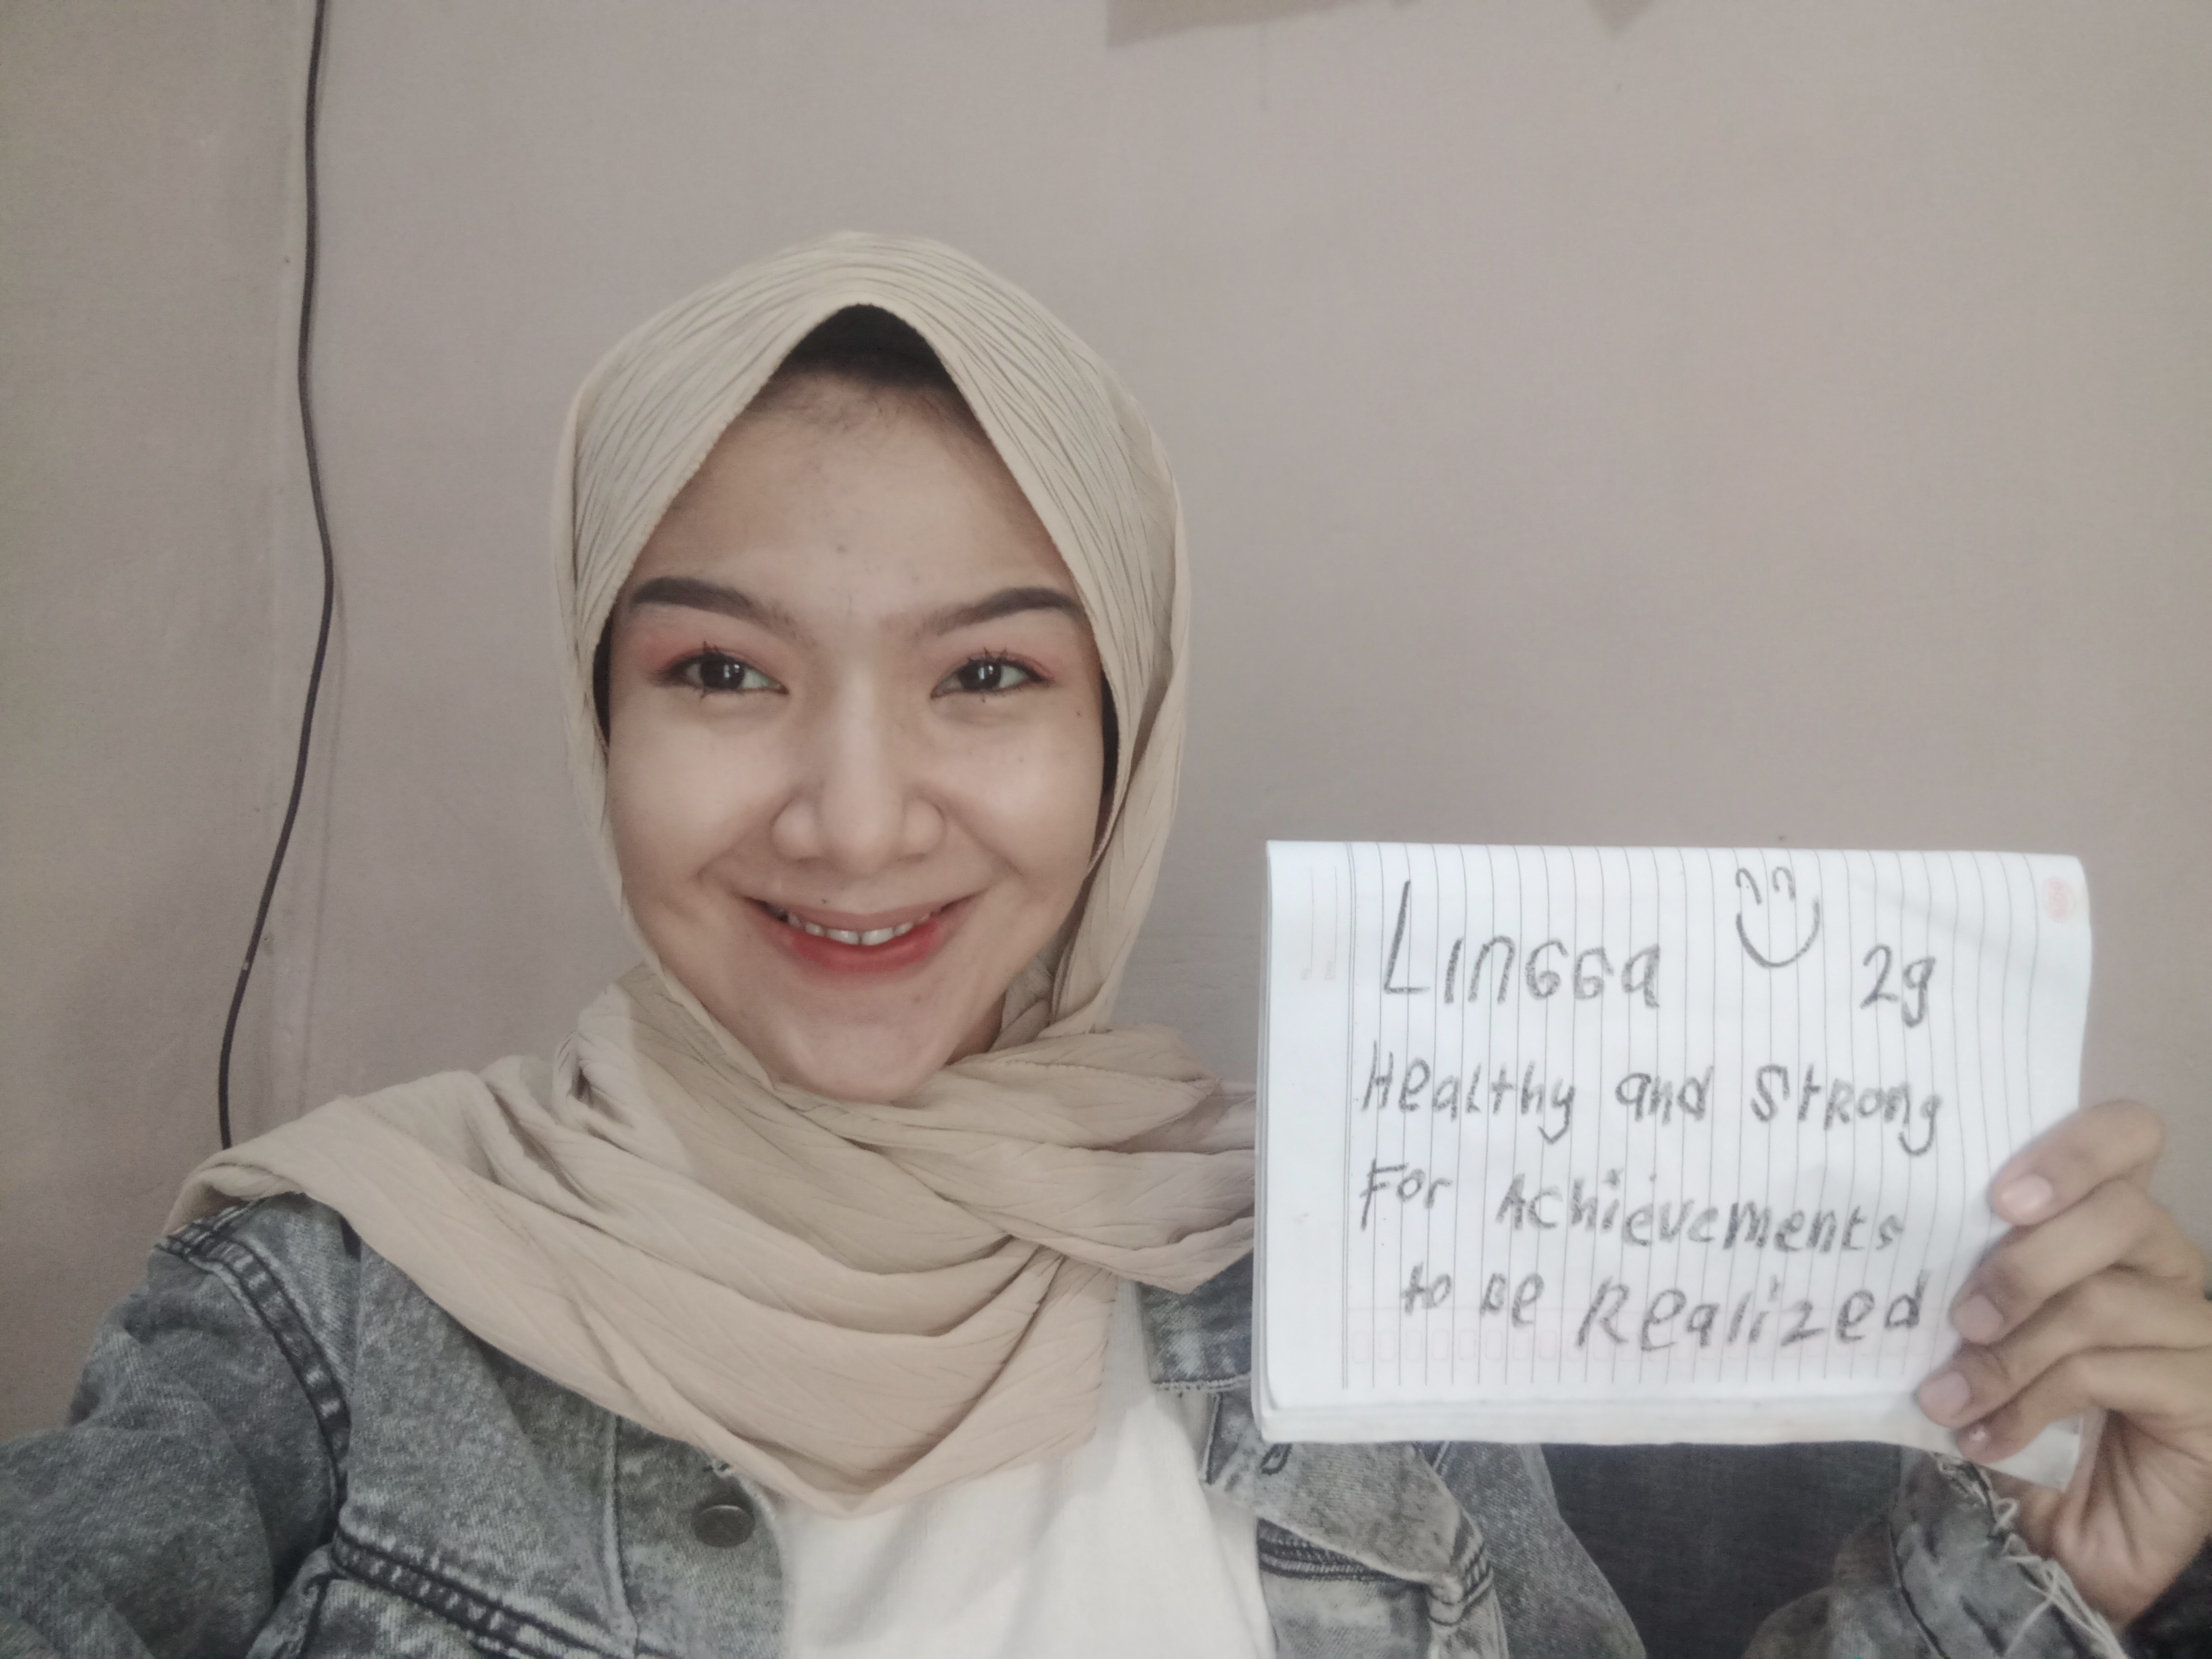 Lingga 2g
Healthy and Strong
For Achievements
to be Realized